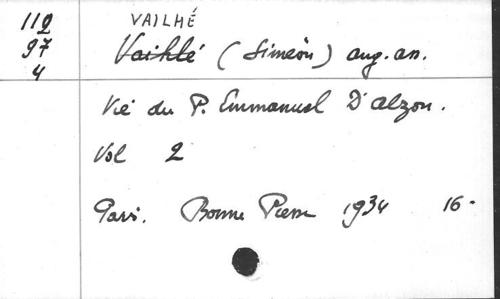 112
97
4
VAILHÉ
Vaihlé (Siméon) aug. as.
Vie du P. Emmanuel D'alzon.
Vol 2
Pari. Bonne Presse 1934 16-